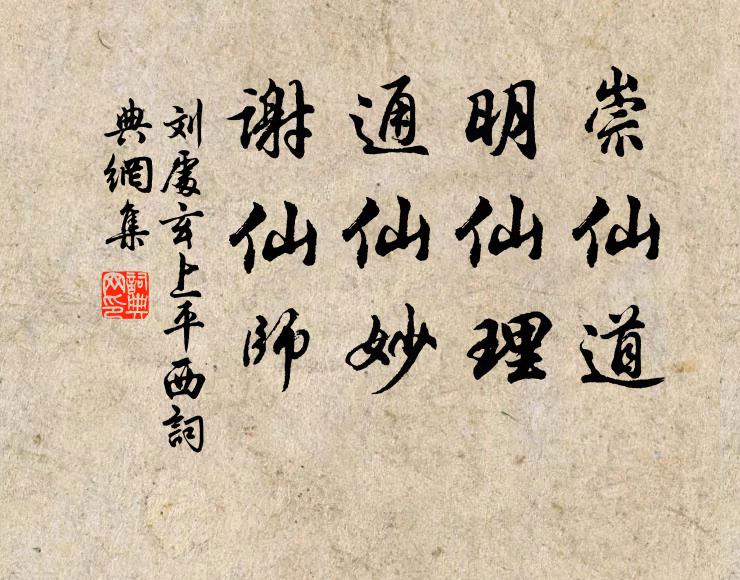 崇仙道
明仙理
通仙妙
謝仙師
刘處玄上平西詞
典網集
詞典網印